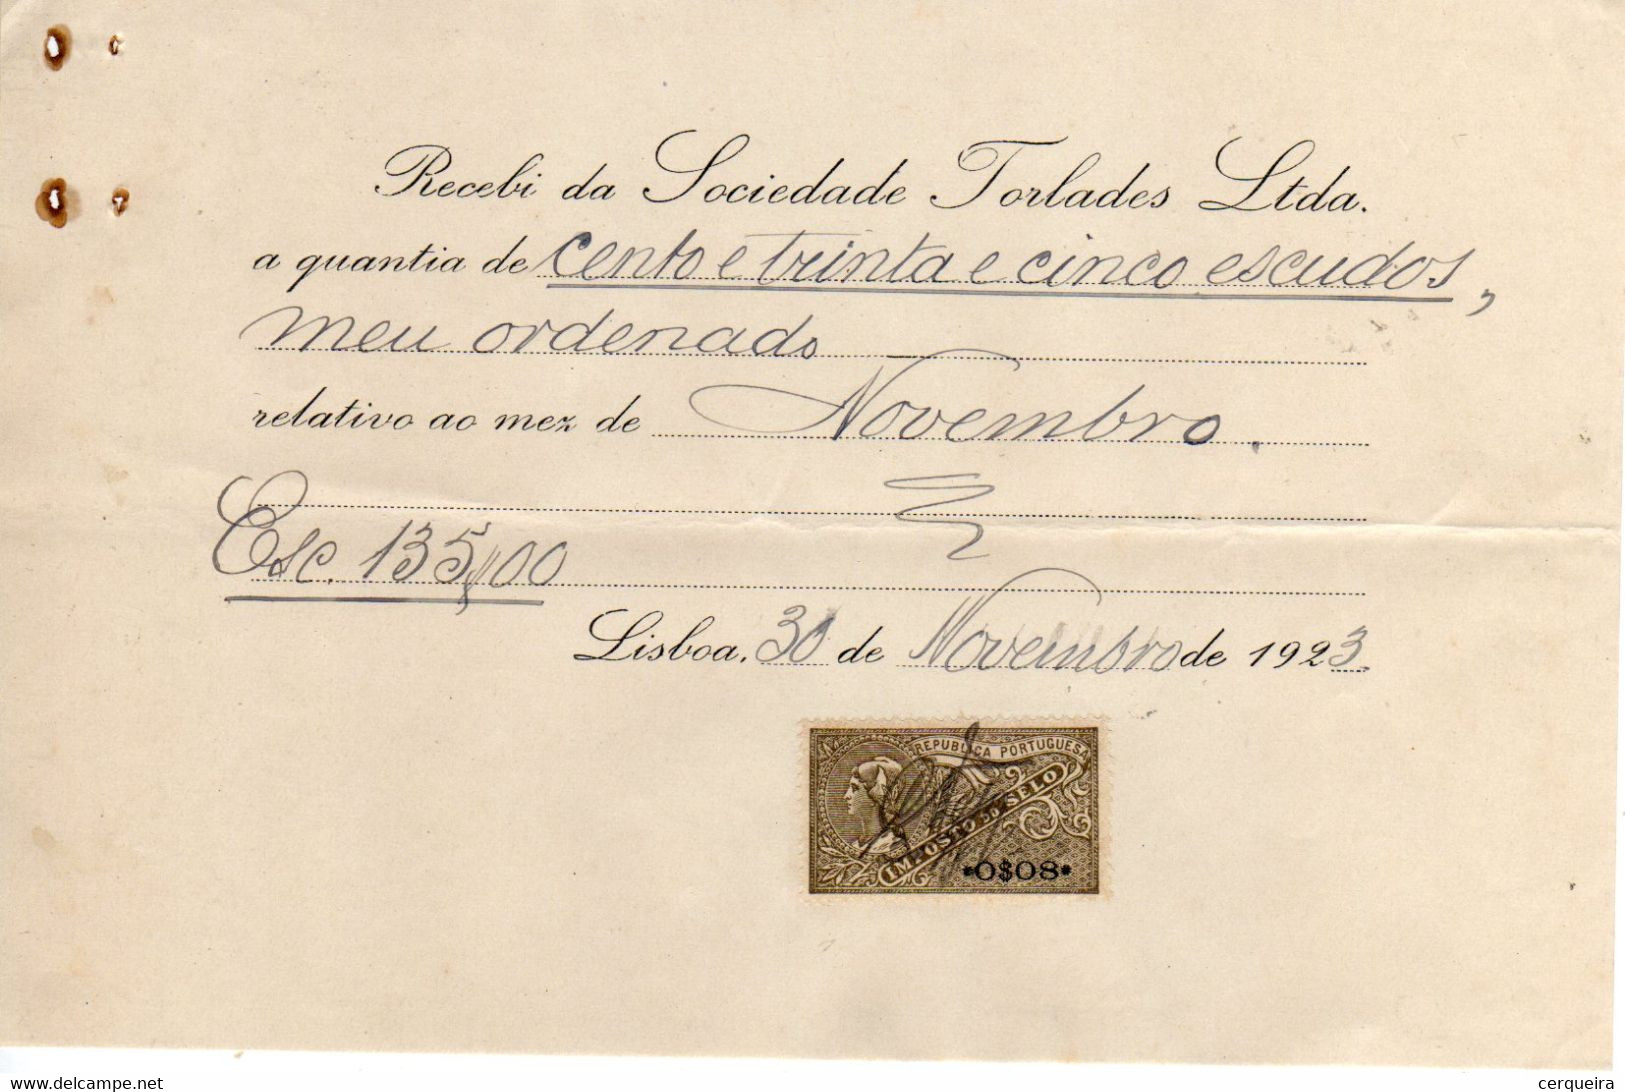 Recebi da Sociedade Torlades Ltda.
a quantia de cento e trinta e cinco escudos,
meu ordenado
relativo ao mez de Novembro.
Esc. 135$00
Lisboa, 30 de Novembro de 1923.
REPUBLICA PORTUGUESA
IMPOSTO DO SELO
*0$08*
www.delcampe.net
cerqueira